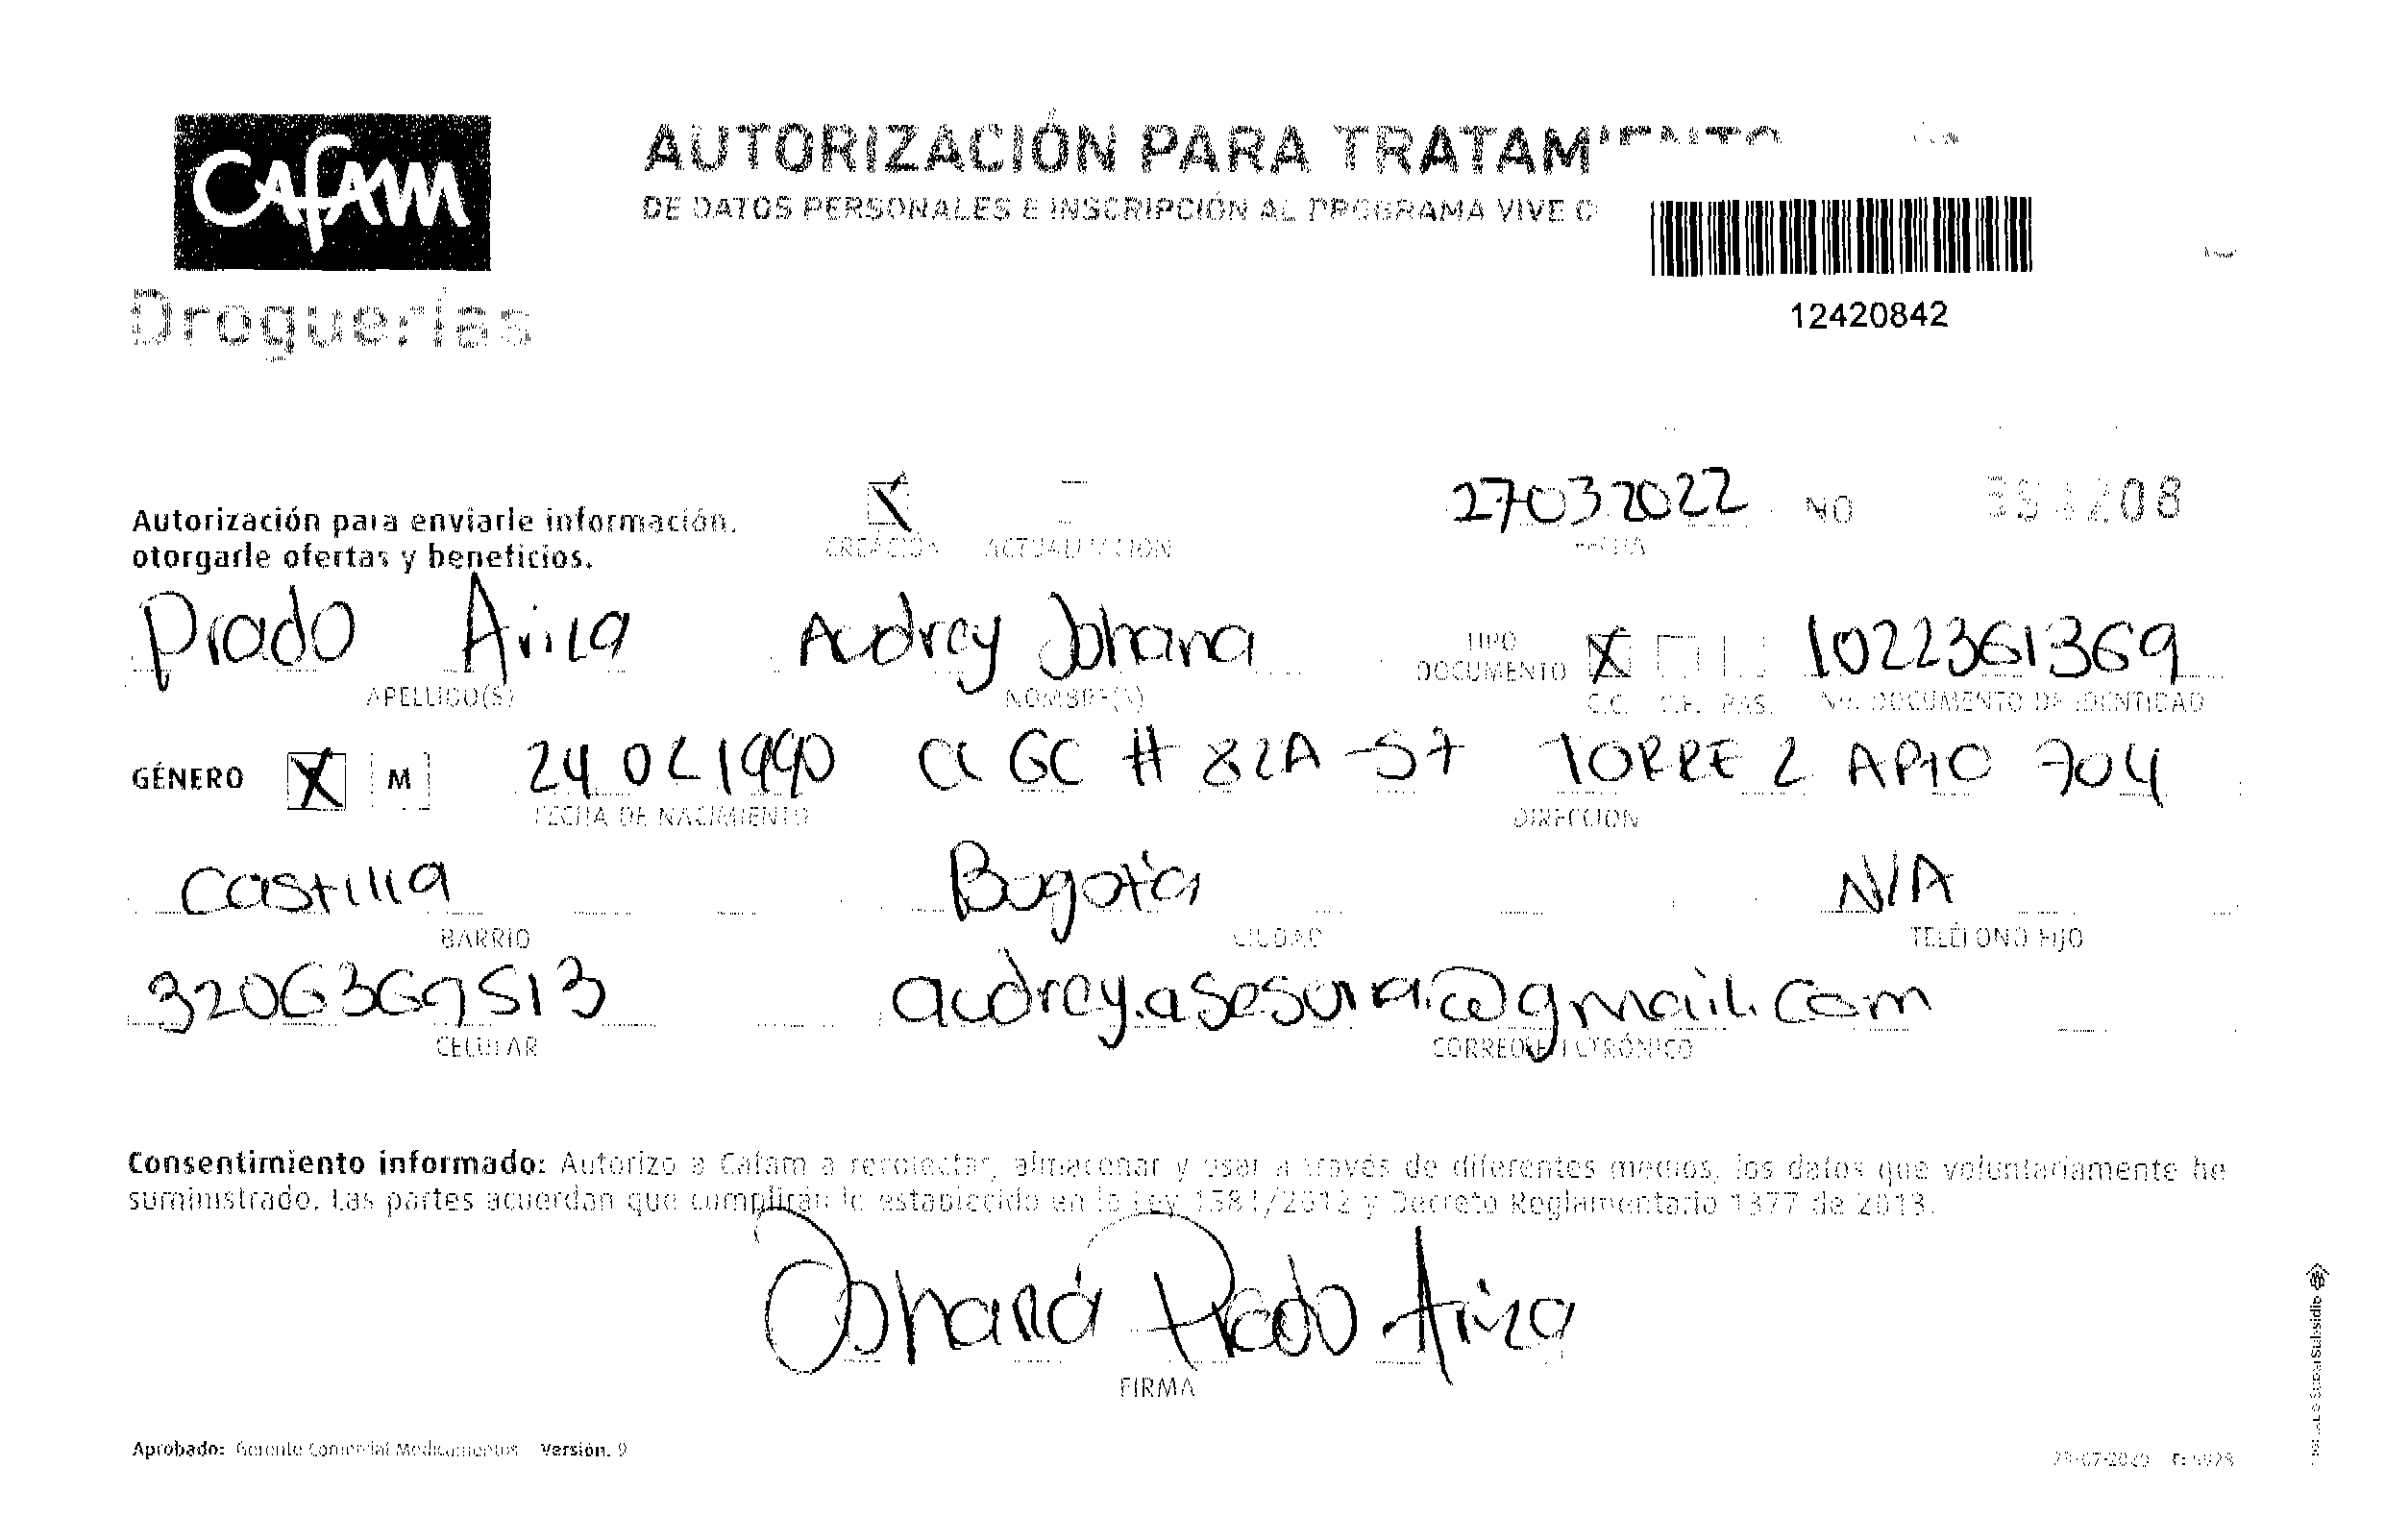 CAFAM
Droguerías
AUTORIZACIÓN PARA TRATAMIENTO
DE DATOS PERSONALES E INSCRIPCIÓN AL PROGRAMA VIVE C
12420842
Autorización para enviarle información,
otorgarle ofertas y beneficios.
X CREACIÓN ACTUALIZACIÓN
27032022 NO
FECHA
Prado Ariza Audrey Johana TIPO DOCUMENTO X 1022361369
APELLIDO(S) NOMBRE(S) C.C. C.E. PAS. No. DOCUMENTO DE IDENTIDAD
GÉNERO X M 24 02 1990 Cl 6C # 82A-57 TORRE 2 APTO 704
FECHA DE NACIMIENTO DIRECCIÓN
Castilla Bogotá N/A
BARRIO CIUDAD TELÉFONO FIJO
3206369513 audrey.asesoria@gmail.com
CELULAR CORREO ELECTRÓNICO
Consentimiento informado: Autorizo a Cafam a recolectar, almacenar y usar a través de diferentes medios, los datos que voluntariamente he
suministrado. Las partes acuerdan que cumplirán lo establecido en la Ley 1581/2012 y Decreto Reglamentario 1377 de 2013.
Johana Prado Ariza
FIRMA
Aprobado: Gerente Comercial Medicamentos Versión. 9
SuperSubsidio